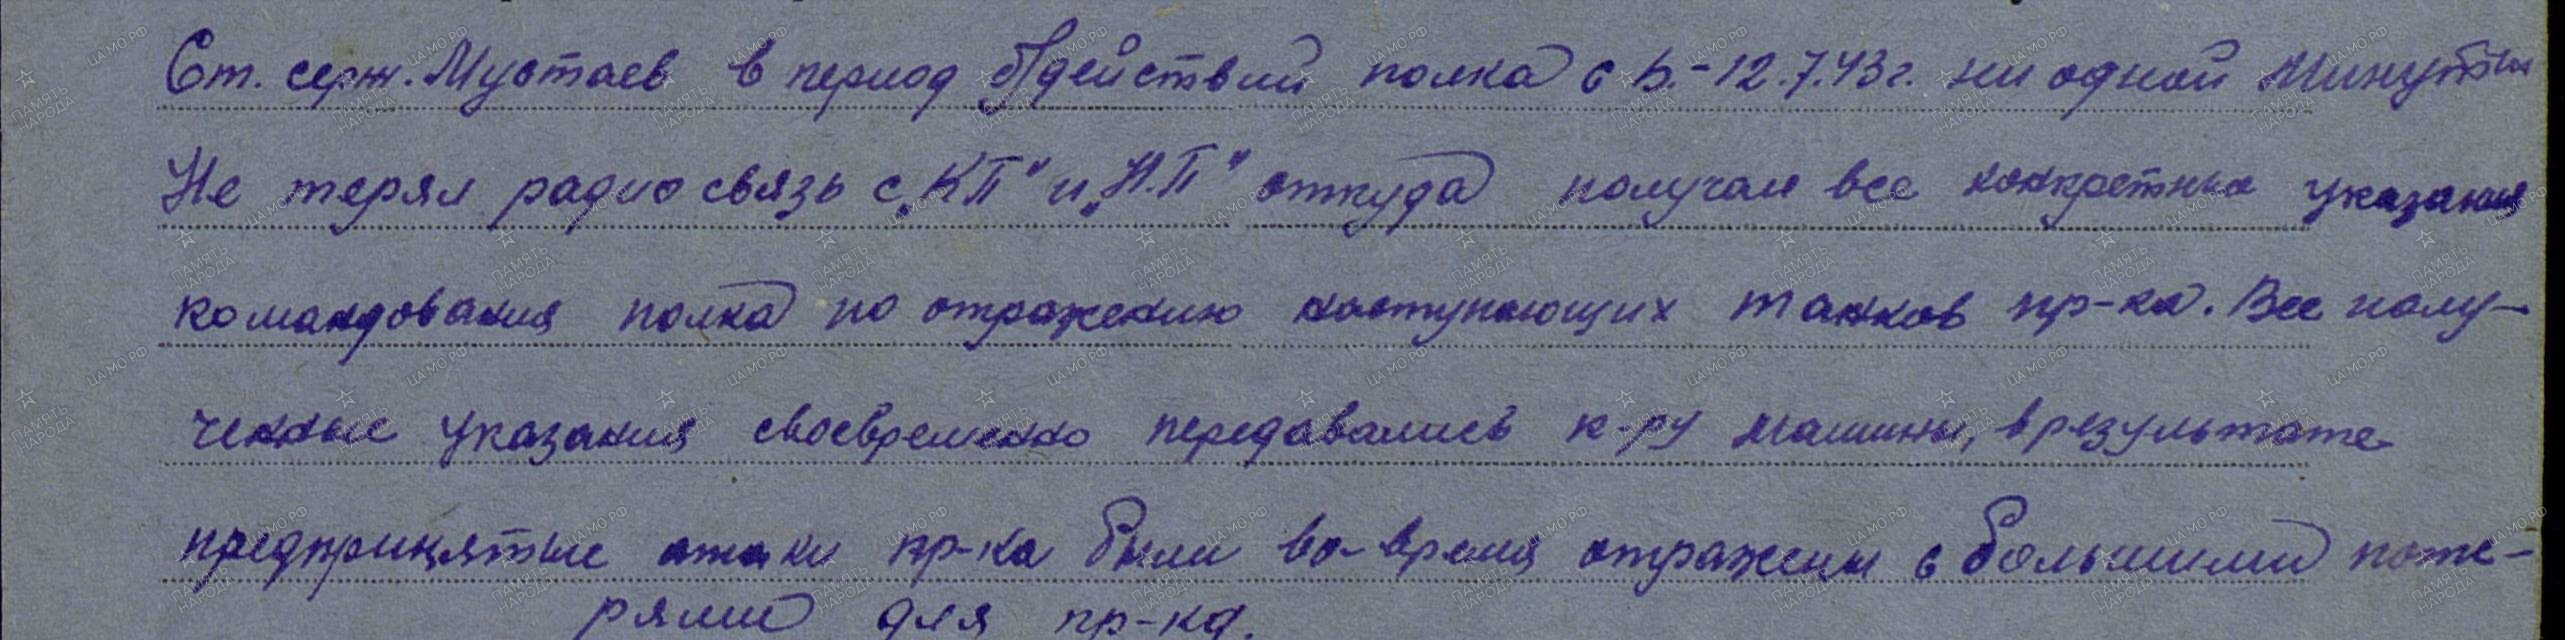 Ст. серж. Мустаев в период б/действий полка с 5.-12.7.43г. ни одной минуты
Не терял радио связь с „КП" и „Н.П" откуда получал все конкретные указания
командования полка по отражению наступающих танков пр-ка. Все полу-
ченные указания своевременно передавались к-ру машины, в результате
предпринятые атаки пр-ка были во-время отражены с большими поте-
рями для пр-ка.